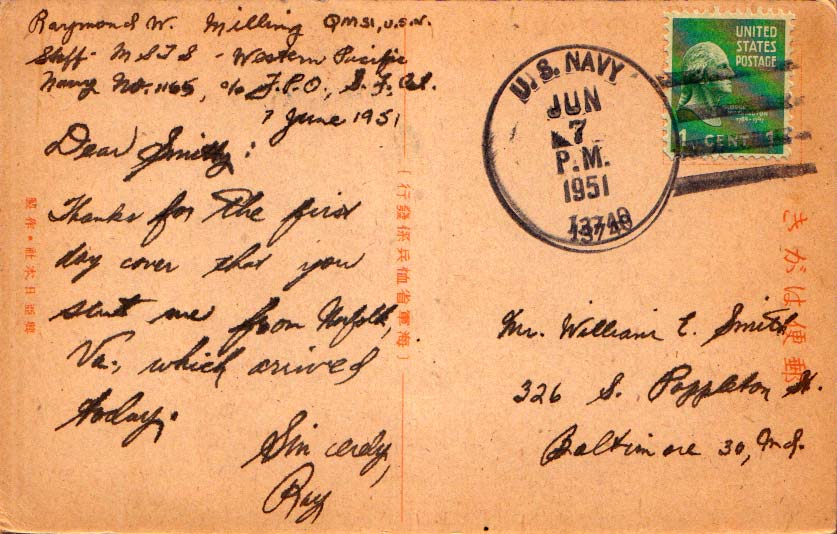 Raymond W. Milling QMS1, U.S.N.
Staff - MSTS - Western Pacific
Navy No. 1165, c/o F.P.O., S.F. Cal.
7 June 1951
Dear Smitty:
Thanks for the first
day cover that you
sent me from Norfolk,
Va., which arrived
today.
Sincerely,
Ray
興亞日本社・作製
(海軍省恤兵係發行)
U.S. NAVY
JUN
7
P.M.
1951
UNITED
STATES
POSTAGE
1 CENT 1
郵便はがき
Mr. William E. Smith
326 S. Poppleton St.
Baltimore 30, Md.